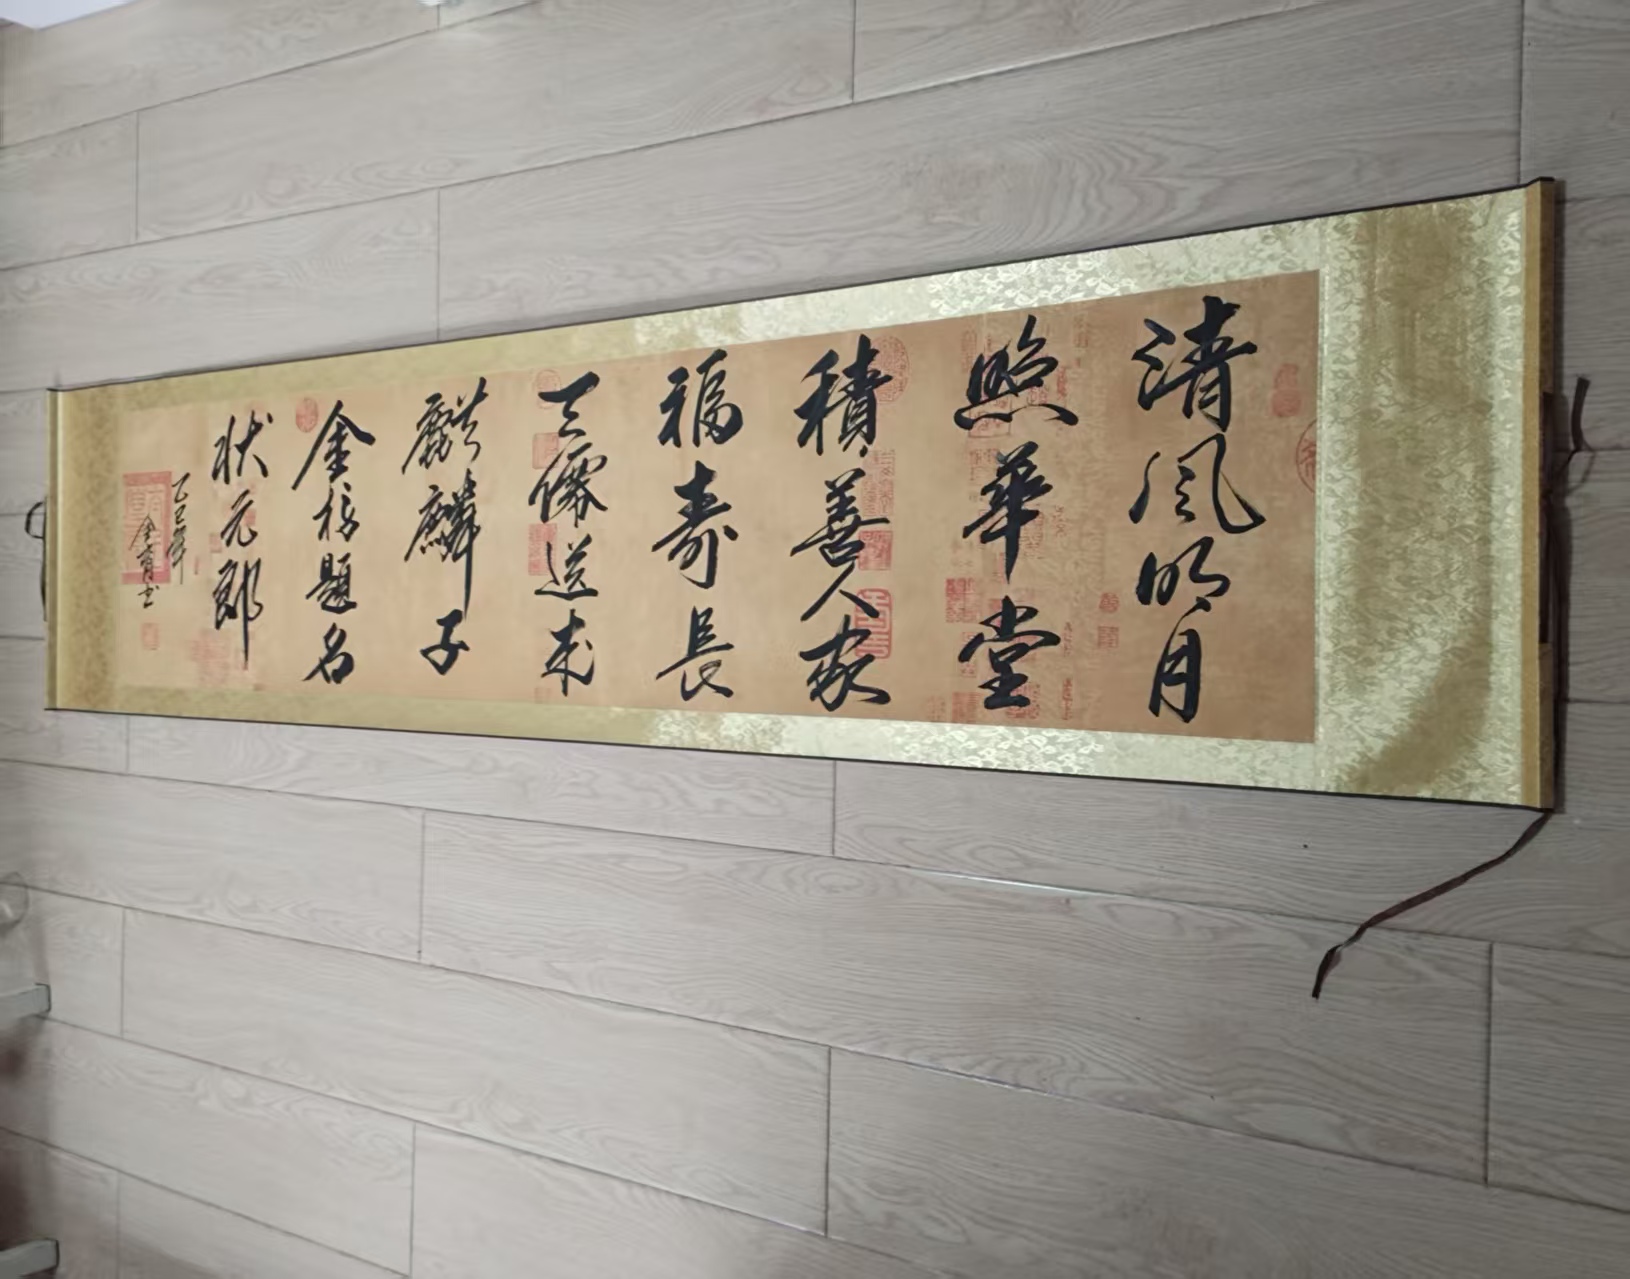 清風明月
照華堂
積善人家
福壽長
天僊送來
麒麟子
金榜題名
狀元郎
乙巳年
書